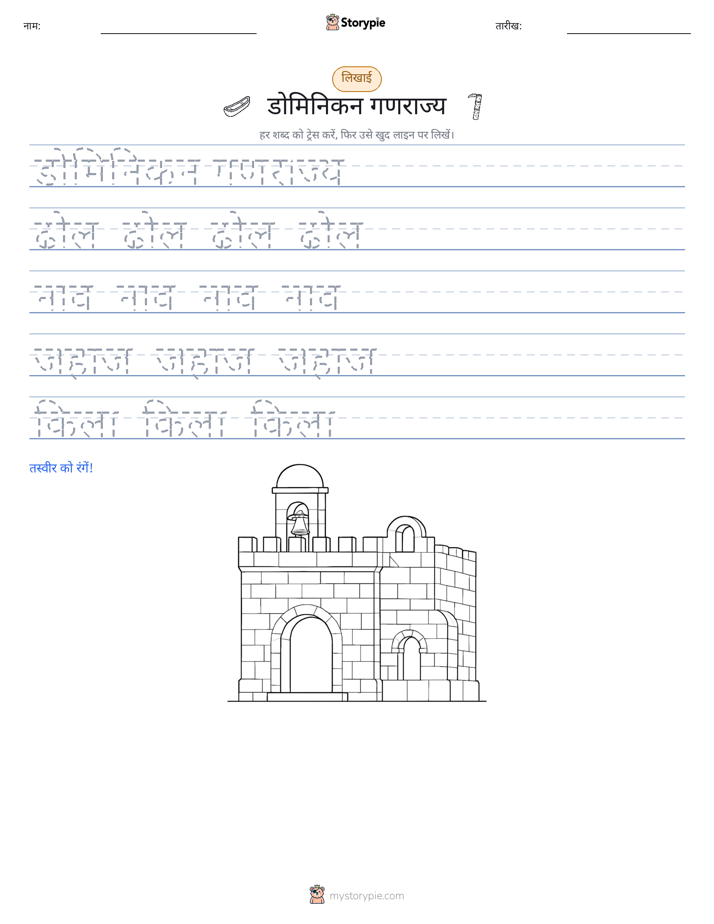 नाम:
Storypie
तारीख:
लिखाई
डोमिनिकन गणराज्य
हर शब्द को ट्रेस करें, फिर उसे खुद लाइन पर लिखें।
डोमिनिकन गणराज्य
ढोल ढोल ढोल ढोल
नाव नाव नाव नाव
जहाज जहाज जहाज
किला किला किला
तस्वीर को रंगें!
mystorypie.com